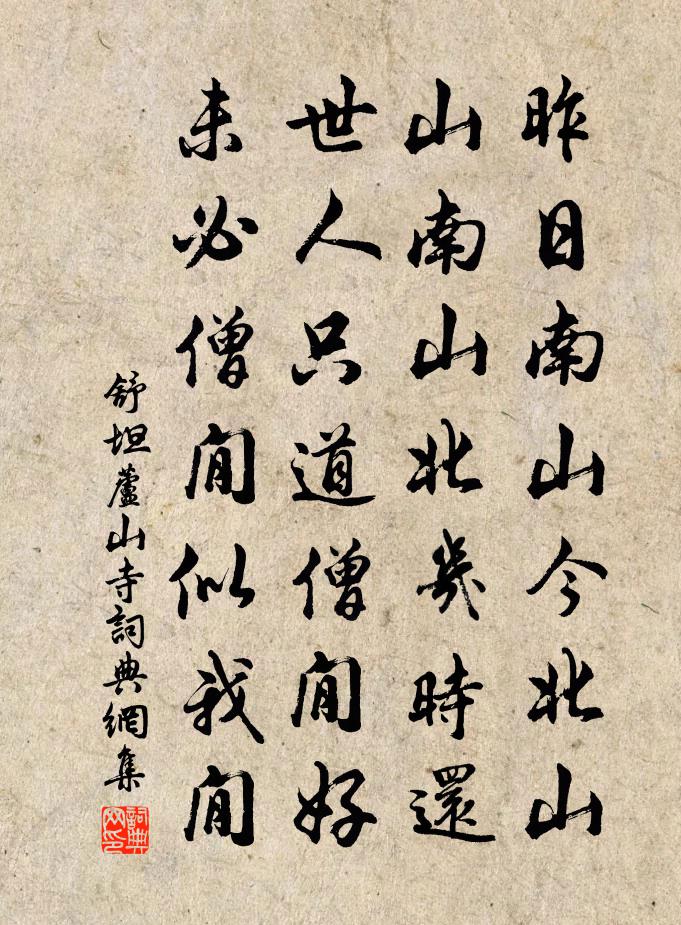 昨日南山今北山
山南山北幾時還
世人只道僧閒好
未必僧閒似我閒
舒坦蘆山寺詞典網集
詞典网印